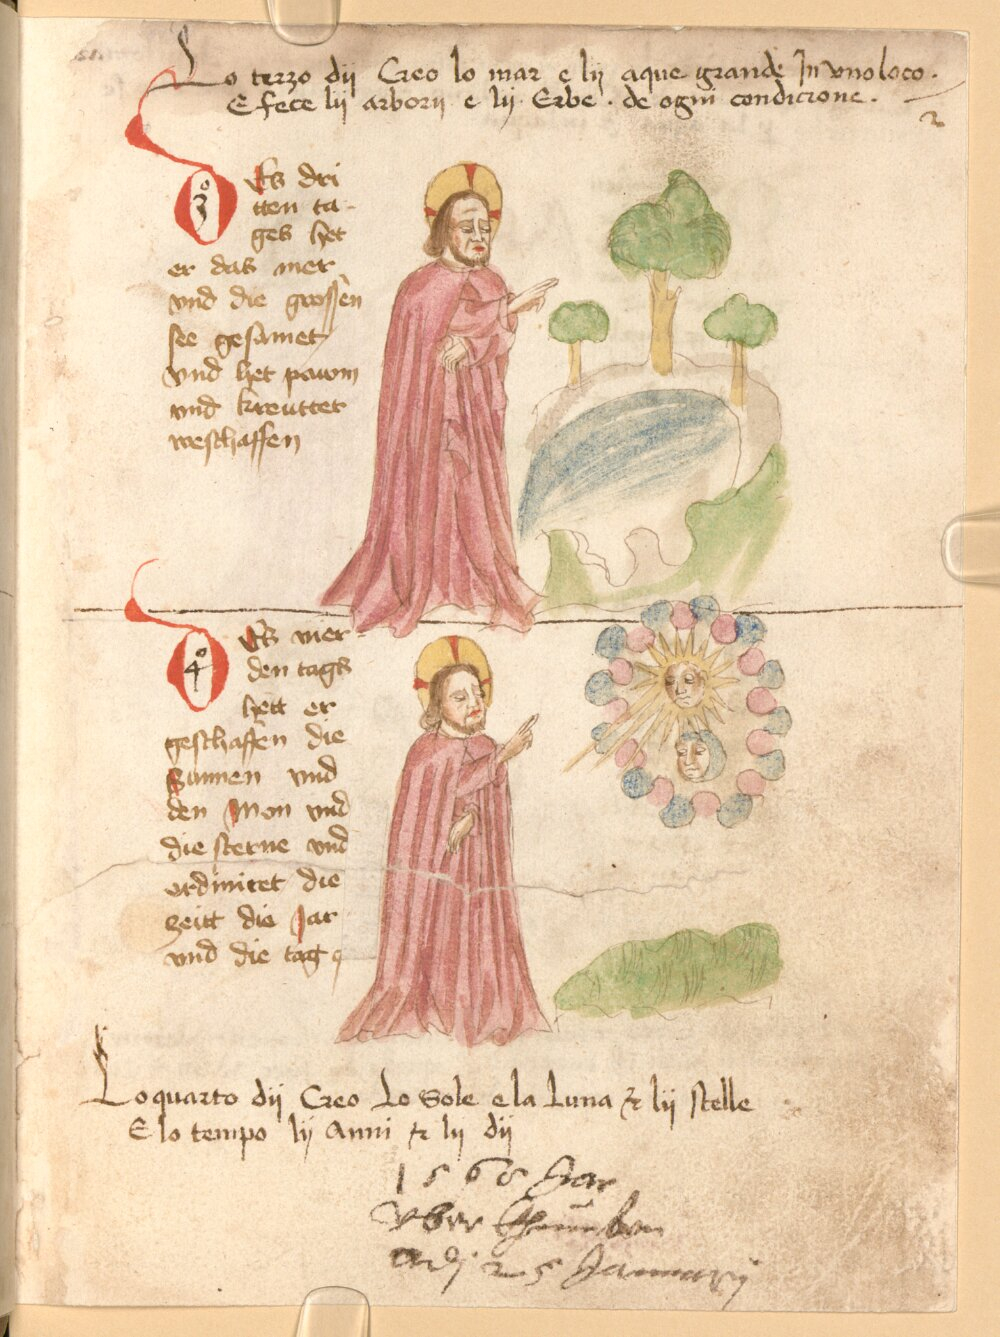 Lo terzo dij Creo lo mar e lij aque grande In vno loco .
E fece lij arborij e lij Erbe . de ogni condicione .
2
3o
Des dri
tten ta-
ges het
er das mer
vnd die grossen
see gesamet
vnd het pawm
vnd kreutter
weschaffen
4o
Des vier
den tags
hett er
geschaffen die
Sunnen vnd
den Mon vnd
die sterne vnd
ordiniret die
zeitt die Jar
vnd die tag
Lo quarto dij Creo Lo Sole e la Luna & lij stelle
E lo tempo lij Anni & lij dij
Jar
vber
adj 25 Januarij